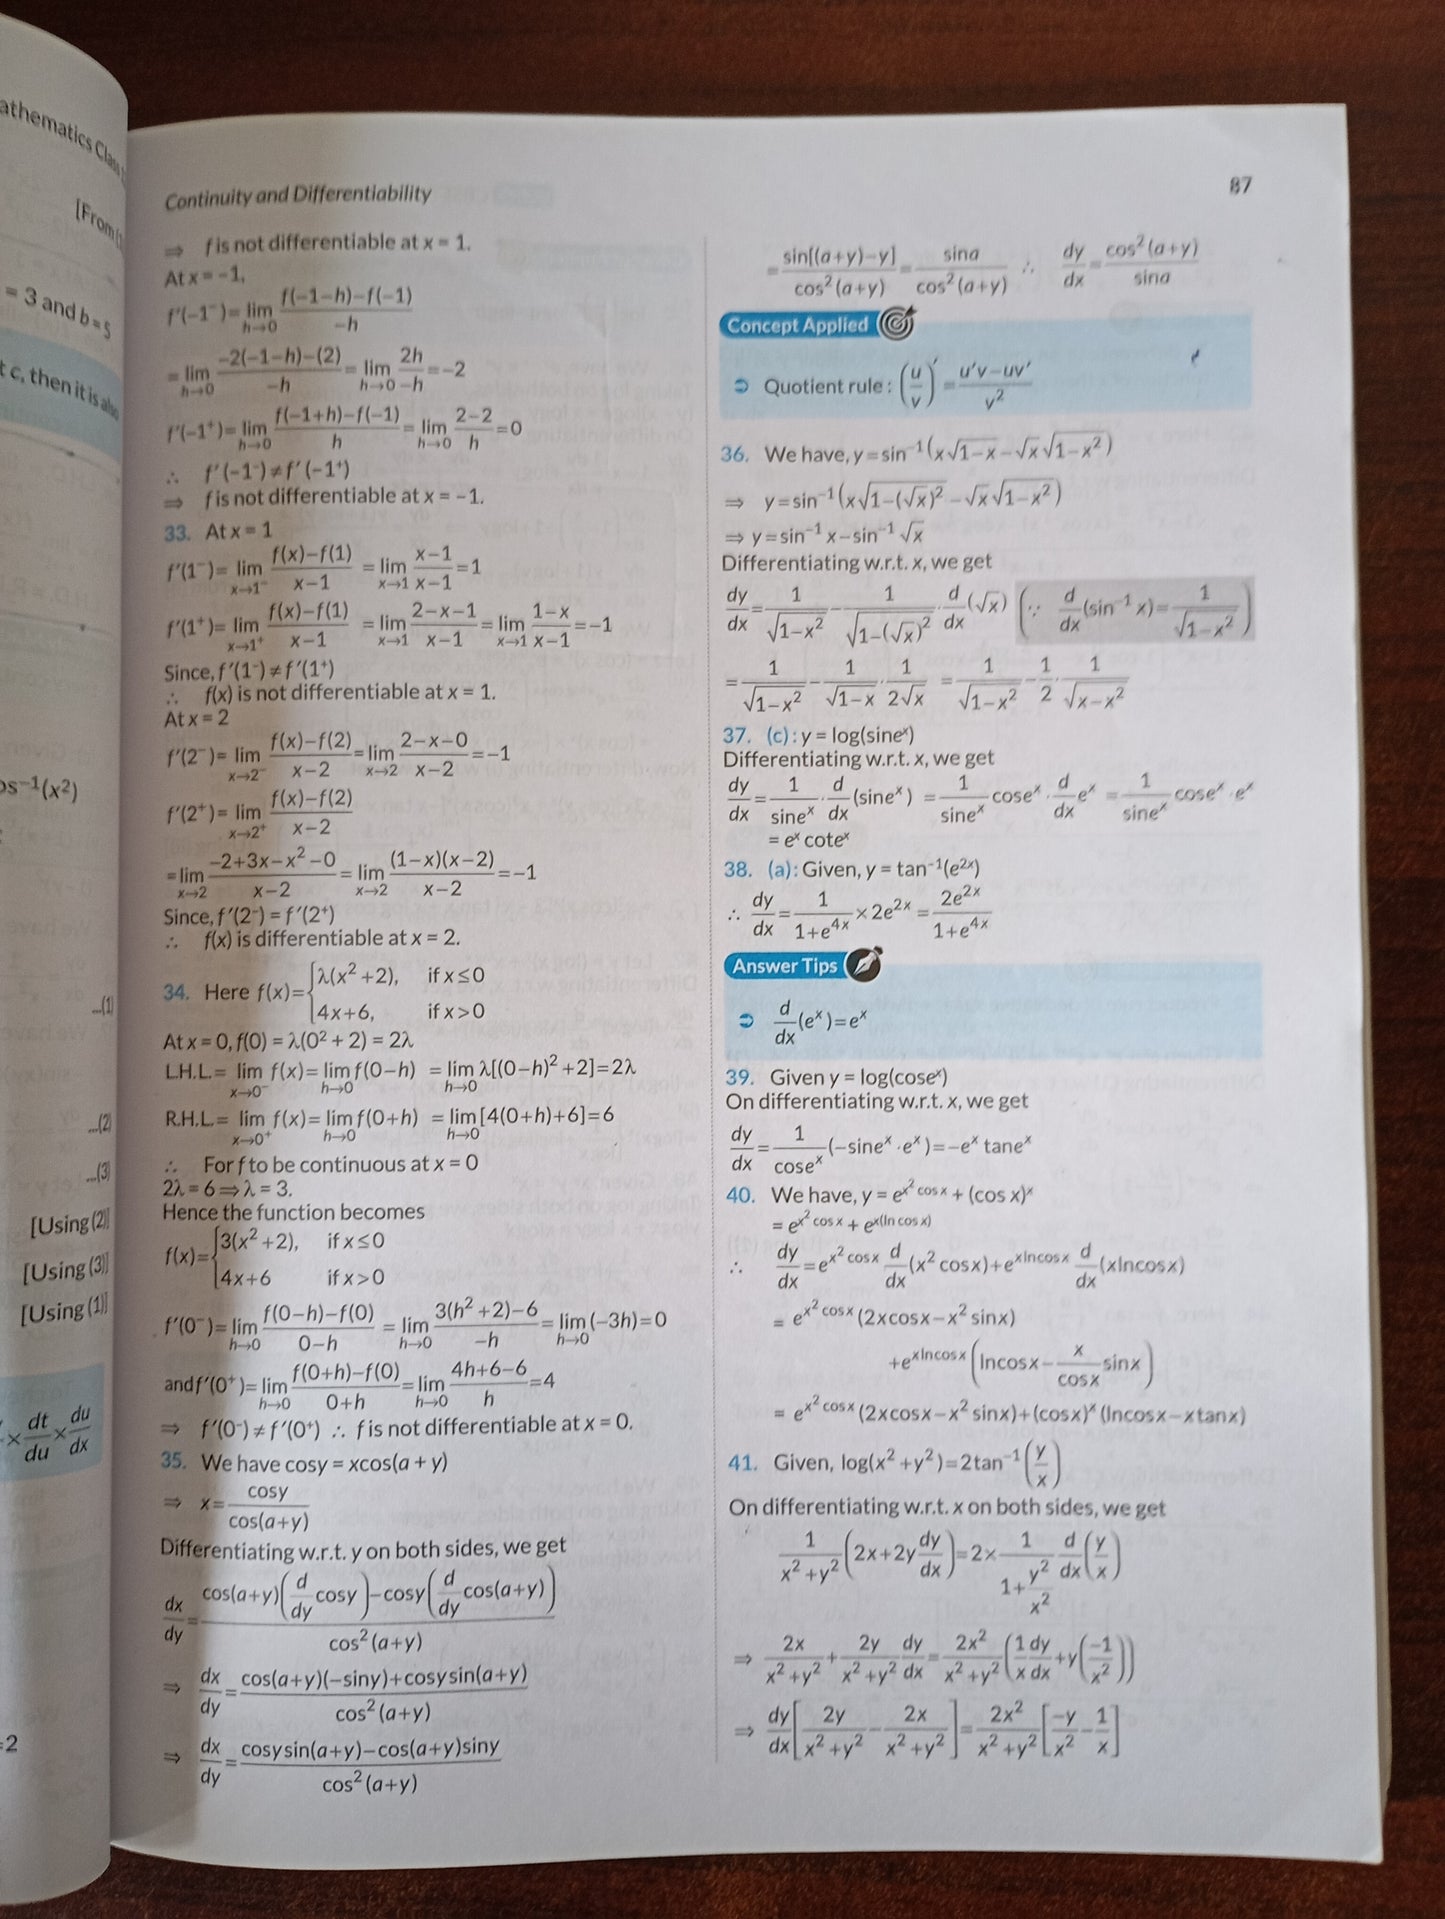 athematics Class
[From
= 3 and b = 5
t c, then it is also
os⁻¹(x²)
...(1)
...(2)
...(3)
[Using (2)]
[Using (3)]
[Using (1)]
× dt/du × du/dx
=2
Continuity and Differentiability
87
⇒ f is not differentiable at x = 1.
At x = –1,
f′(–1⁻) = lim_{h→0} (f(–1–h)–f(–1))/(–h)
= lim_{h→0} (–2(–1–h)–(2))/(–h) = lim_{h→0} 2h/–h = –2
f′(–1⁺) = lim_{h→0} (f(–1+h)–f(–1))/h = lim_{h→0} (2–2)/h = 0
∴ f′(–1⁻) ≠ f′(–1⁺)
⇒ f is not differentiable at x = –1.
33. At x = 1
f′(1⁻) = lim_{x→1⁻} (f(x)–f(1))/(x–1) = lim_{x→1} (x–1)/(x–1) = 1
f′(1⁺) = lim_{x→1⁺} (f(x)–f(1))/(x–1) = lim_{x→1} (2–x–1)/(x–1) = lim_{x→1} (1–x)/(x–1) = –1
Since, f′(1⁻) ≠ f′(1⁺)
∴ f(x) is not differentiable at x = 1.
At x = 2
f′(2⁻) = lim_{x→2⁻} (f(x)–f(2))/(x–2) = lim_{x→2} (2–x–0)/(x–2) = –1
f′(2⁺) = lim_{x→2⁺} (f(x)–f(2))/(x–2)
= lim_{x→2} (–2+3x–x²–0)/(x–2) = lim_{x→2} ((1–x)(x–2))/(x–2) = –1
Since, f′(2⁻) = f′(2⁺)
∴ f(x) is differentiable at x = 2.
34. Here f(x) = { λ(x²+2), if x ≤ 0
4x+6, if x > 0
At x = 0, f(0) = λ(0² + 2) = 2λ
L.H.L. = lim_{x→0⁻} f(x) = lim_{h→0} f(0–h) = lim_{h→0} λ[(0–h)²+2] = 2λ
R.H.L. = lim_{x→0⁺} f(x) = lim_{h→0} f(0+h) = lim_{h→0} [4(0+h)+6] = 6
∴ For f to be continuous at x = 0
2λ = 6 ⇒ λ = 3.
Hence the function becomes
f(x) = { 3(x²+2), if x ≤ 0
4x+6 if x > 0
f′(0⁻) = lim_{h→0} (f(0–h)–f(0))/(0–h) = lim_{h→0} (3(h²+2)–6)/(–h) = lim_{h→0} (–3h) = 0
and f′(0⁺) = lim_{h→0} (f(0+h)–f(0))/(0+h) = lim_{h→0} (4h+6–6)/h = 4
⇒ f′(0⁻) ≠ f′(0⁺) ∴ f is not differentiable at x = 0.
35. We have cosy = xcos(a + y)
⇒ x = cosy/cos(a+y)
Differentiating w.r.t. y on both sides, we get
dx/dy = (cos(a+y)(d/dy cosy)–cosy(d/dy cos(a+y)))/cos²(a+y)
⇒ dx/dy = (cos(a+y)(–siny)+cosysin(a+y))/cos²(a+y)
⇒ dx/dy = (cosysin(a+y)–cos(a+y)siny)/cos²(a+y)
= sin[(a+y)–y]/cos²(a+y) = sina/cos²(a+y) ∴ dy/dx = cos²(a+y)/sina
Concept Applied
➲ Quotient rule : (u/v)′ = (u′v–uv′)/v²
36. We have, y = sin⁻¹(x√(1–x) – √x√(1–x²))
⇒ y = sin⁻¹(x√(1–(√x)²) – √x√(1–x²))
⇒ y = sin⁻¹ x – sin⁻¹ √x
Differentiating w.r.t. x, we get
dy/dx = 1/√(1–x²) – 1/√(1–(√x)²) · d/dx(√x) (∵ d/dx(sin⁻¹ x) = 1/√(1–x²))
= 1/√(1–x²) – 1/√(1–x) · 1/(2√x) = 1/√(1–x²) – 1/2 · 1/√(x–x²)
37. (c) : y = log(sineˣ)
Differentiating w.r.t. x, we get
dy/dx = 1/sineˣ · d/dx(sineˣ) = 1/sineˣ coseˣ · d/dx eˣ = 1/sineˣ coseˣ · eˣ
= eˣ coteˣ
38. (a) : Given, y = tan⁻¹(e²ˣ)
∴ dy/dx = 1/(1+e⁴ˣ) × 2e²ˣ = 2e²ˣ/(1+e⁴ˣ)
Answer Tips
➲ d/dx(eˣ) = eˣ
39. Given y = log(coseˣ)
On differentiating w.r.t. x, we get
dy/dx = 1/coseˣ (–sineˣ · eˣ) = –eˣ taneˣ
40. We have, y = e^(x² cos x) + (cos x)ˣ
= e^(x² cos x) + e^(x(ln cos x))
∴ dy/dx = e^(x² cos x) d/dx(x² cosx) + e^(xlncosx) d/dx(xlncosx)
= e^(x² cosx) (2xcosx–x² sinx)
+e^(xlncosx) (lncosx – x/cosx sinx)
= e^(x² cosx) (2xcosx–x² sinx)+(cosx)ˣ (lncosx–xtanx)
41. Given, log(x²+y²) = 2tan⁻¹(y/x)
On differentiating w.r.t. x on both sides, we get
1/(x²+y²) (2x+2y dy/dx) = 2× 1/(1+y²/x²) d/dx(y/x)
⇒ 2x/(x²+y²) + 2y/(x²+y²) dy/dx = 2x²/(x²+y²) (1/x dy/dx + y(–1/x²))
⇒ dy/dx [2y/(x²+y²) – 2x/(x²+y²)] = 2x²/(x²+y²) [–y/x² – 1/x]